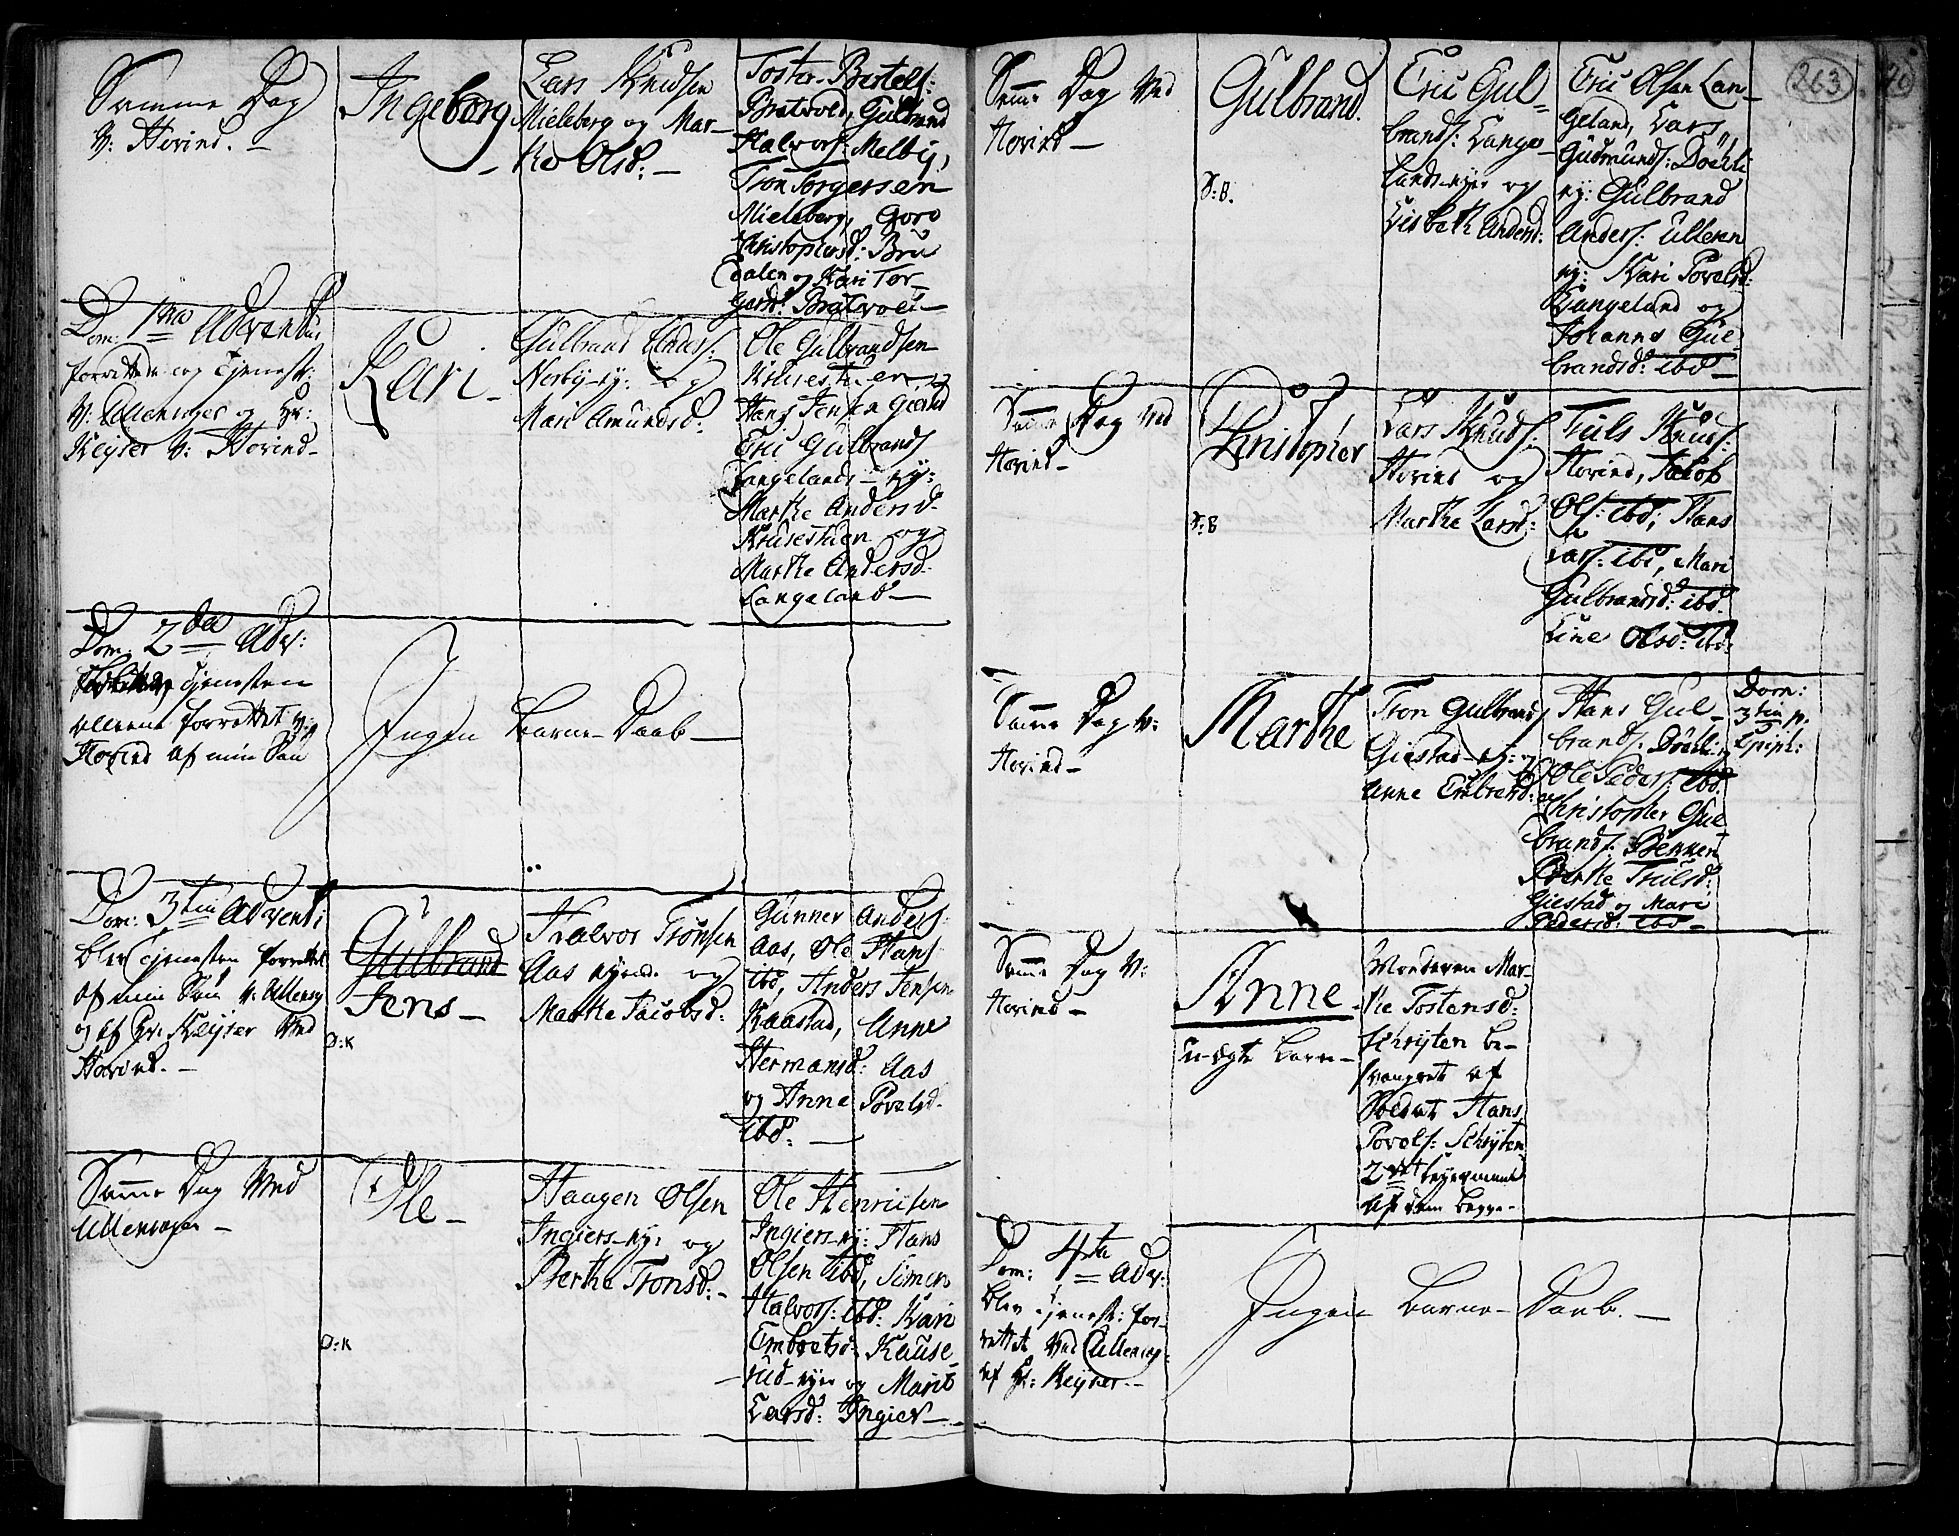 Samme Dag
v: Hovind. -
Ingeborg
Lars Knudsen
Mieleborg og Mar-
the Olsd: -
Tosten Bertels:
Bratvold, Gulbrand
Halvors: Melby,
Tron Torgersen
Mieleborg, Goro
Christophersd: Bru
dalen og Kari Tor-
gersd: Bratvold -
Dom: 1ma Adventus
forrettede og Tjenest:
v: Ullensager og Hr:
Keyser v: Hovind -
Kari -
Gulbrand Anders:
Norby-ey: - og
Mari Amundsd:
Ole Gulbrandsen
Krusestuen,
Hans Jensen Giestad
Eric Gulbrands
Langelands - ey:
Marthe Andersd.
Krusestuen og
Marthe Andersd.
Langeland -
Dom: 2da Adv:
Tjenesten
allene forrettet v:
Hovind af min Søn
Ingen Barne-Daab -
Dom: 3tia Adventi
blev Tjenesten forrettet
af min Søn v: Ullensag
og af Hr: Keyser ved
Hovind. -
Gulbrand
Jens -
D:K
Halvor Tronsen
Aas eyende og
Marthe Jacobsd:
Gunner Anders:
Aas, Ole Hans:
ibd, Anders Jensen
Kaastad, Anne
Hermansd: Aas
og Anne Povelsd.
ibd: -
Samme Dag ved
Ullensager -
Ole -
D:K
Haagen Olsen
Ingiers-ey: og
Berthe Tronsd: -
Ole Henrichsen
Ingiers-ey: Hans
Olsen ibd, Simen
Halvors: ibd: Kari
Embretsd: Kause-
rud-eyer og Marit
Larsd: Ingier -
263
Samme Dag ved
Hovind -
Gulbrand.
F:B.
Eric Gul-
brands: Lange-
lands-eyer og
Lisbeth Andersd:
Eric Olsen Lan-
geland, Lars
Gudmunds: Døhli
ey: Gulbrand
Anders: Ulleren
ey: Kari Povelsd:
Langeland og
Johanne Gul-
brandsd: ibd -
Samme Dag ved
Hovind -
Christopher
F:B
Lars Knuds:
Hovind og
Marthe Larsd:
Truls Knuds:
Hovind, Jacob
Ols: ibd, Hans
Lars: ibd, Mari
Gulbrandsd: ibd.
Line Olsd: ibd:
Samme Dag v:
Hovind -
Marthe
Tron Gulbrands
Giestad-ey: og
Anne Embretsd:
Hans Gul-
brands. Døhli:
Ole Peders: ibd.
Christopher Gul
brands: Becken
Berthe Trulsd:
Giestad og Mari
Pedersd: ibd -
Dom:
3tia p.
Epiph:
Samme Dag v:
Hovind -
Anne -
u-ægte Barn -
Moderen Mar-
the Tostensd:
Schryten be-
svangret af
Soldat Hans
Povels: Schryten
2det Leyermaal
af dem begge -
Dom: 4ta Adv:
blev Tjenest: for-
rettet ved Ullensag:
af Hr: Keyser. -
Ingen Barne-Daab. -